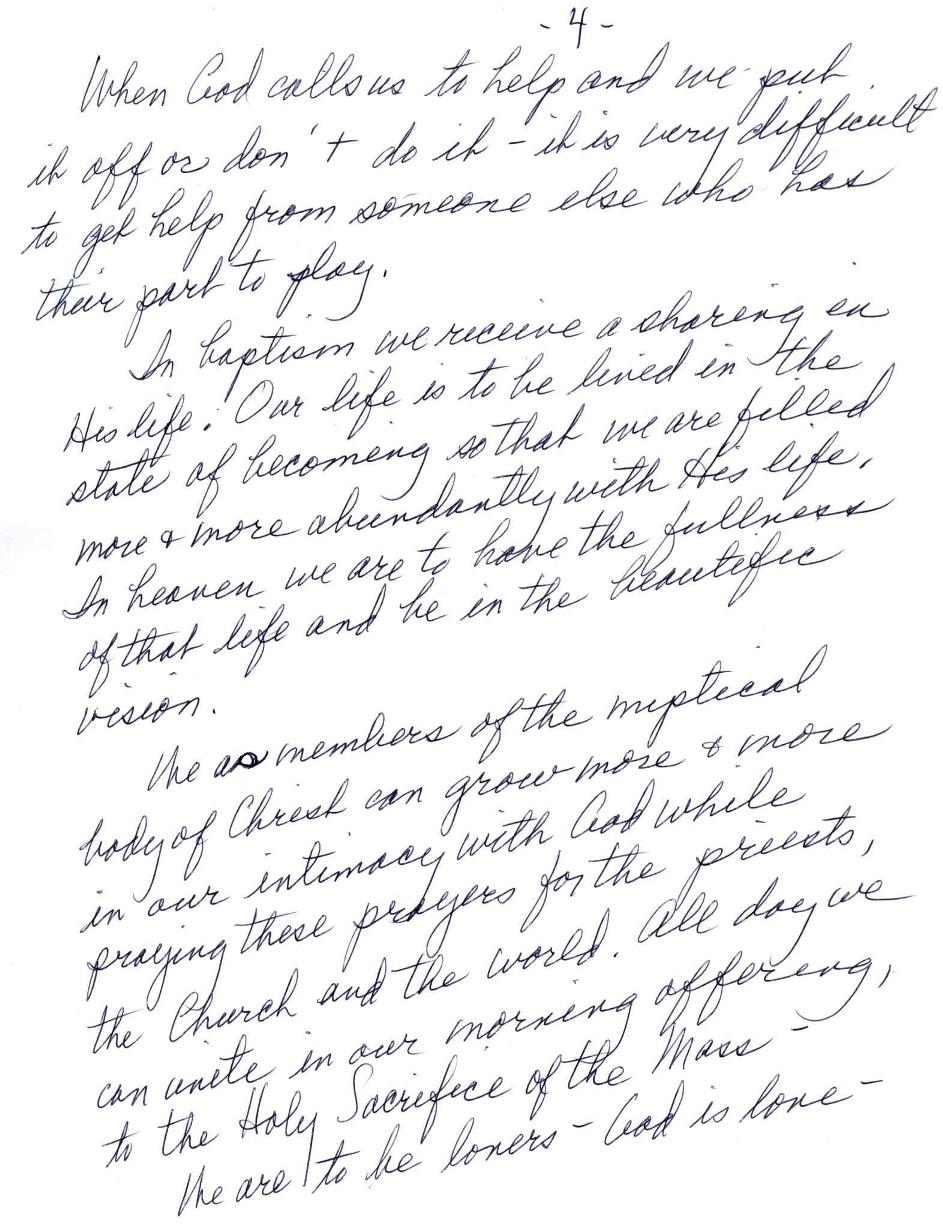 - 4 -
When God calls us to help and we put
it off or don't do it - it is very difficult
to get help from someone else who has
their part to play.
In baptism we receive a sharing in
His life. Our life is to be lived in the
state of becoming so that we are filled
more & more abundantly with His life.
In heaven we are to have the fullness
of that life and be in the beautific
vision.
We as members of the myptical
body of Christ can grow more & more
in our intimacy with God while
praying these prayers for the priests,
the Church and the world. All day we
can unite in our morning offering,
to the Holy Sacrifice of the Mass -
We are to be lovers - God is love -